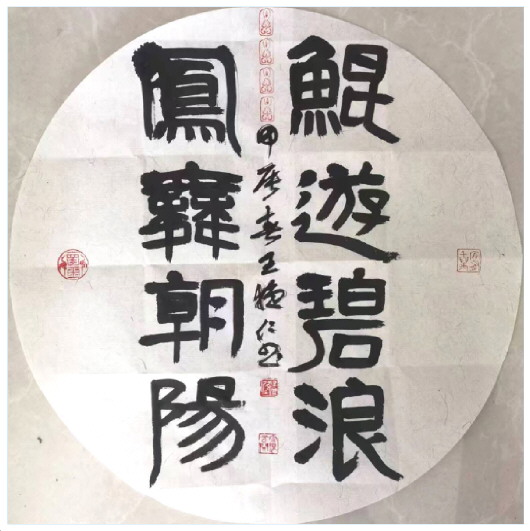 鯤遊碧浪
鳳舞朝陽
甲辰春王